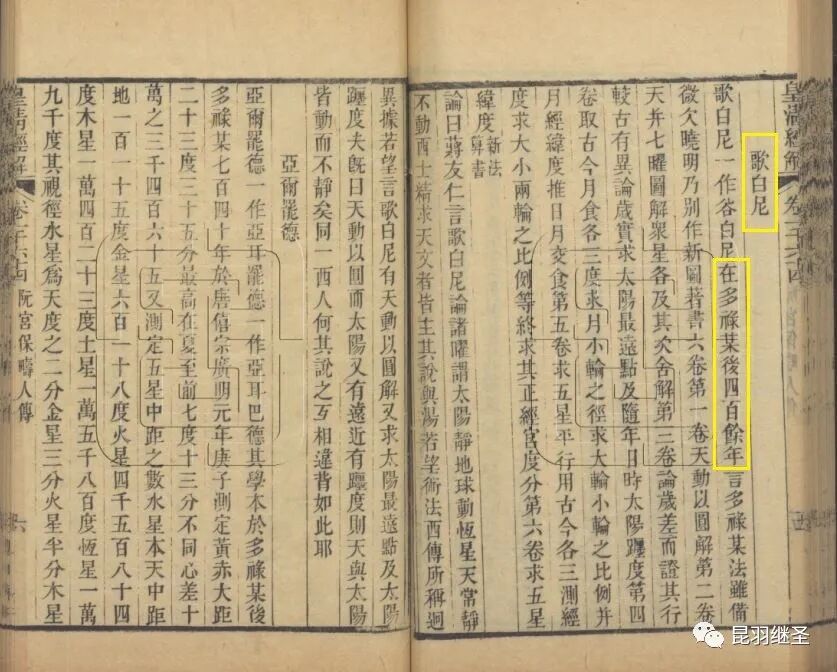 皇清經解 卷千六四
歌白尼
歌白尼一作谷白尼在多祿某後四百餘年言多祿某法雖備
微欠曉明乃別作新圖著書六卷第一卷天動以圓解第二卷
天并七曜圖解衆星各及其次舍解第三卷論歲差而證其行
較古有異論歲實求太陽最遠點及隨年日時太陽躔度第四
卷取古今月食各三度求月小輪之徑求大輪小輪之比例并
月經緯度推日月交食第五卷求五星平行用古今各三測經
度求大小兩輪之比例等終求其正經宮度分第六卷求五星
緯度新法算書
論曰蔣友仁言歌白尼論諸曜謂太陽靜地球動恆星天常靜
不動西士精求天文者皆主其說與湯若望術法西傳所稱迥
異據若望言歌白尼有天動以圓解又求太陽最遠點及太陽
躔度夫既曰天動以圓而太陽又有遠近有躔度則天與太陽
皆動而不靜矣同一西人何其說之互相違背如此耶
亞爾罷德
亞爾罷德一作亞耳罷德一作亞耳巴德其學本於多祿某後
多祿某七百四十年於唐僖宗廣明元年庚子測定黃赤大距
二十三度三十五分最高在夏至前七度十三分不同心差十
萬之三千四百六十五又測定五星中距之數水星本天中距
地一百一十五度金星六百一十八度火星四千五百八十四
度木星一萬四百二十三度土星一萬五千八百度恆星一萬
九千度其視徑水星爲天度之二分金星三分火星半分木星
皇清經解 阮宮保疇人傳 六
昆羽继圣